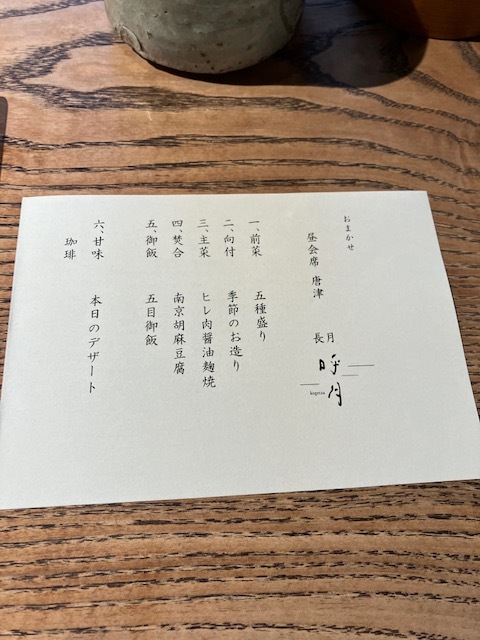 おまかせ
昼会席 唐津
長月
kogetsu
一、前菜 五種盛り
二、向付 季節のお造り
三、主菜 ヒレ肉醤油麹焼
四、焚合 南京胡麻豆腐
五、御飯 五目御飯
六、甘味 本日のデザート
珈琲